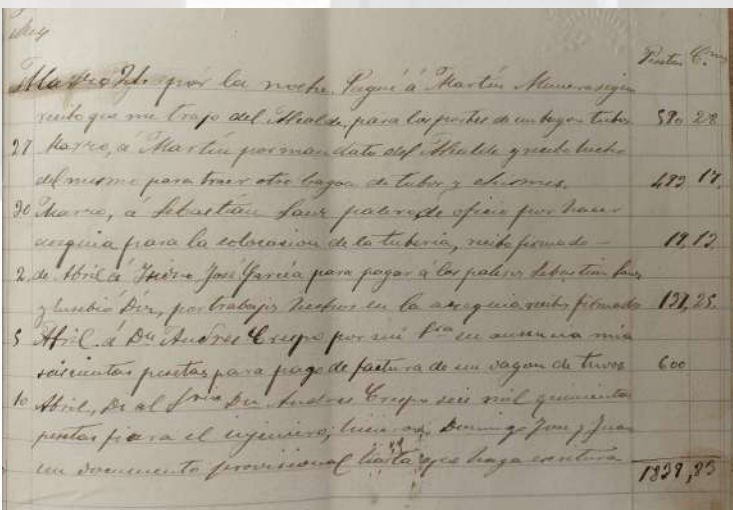 Pesetas C.mos
Marzo 24 por la noche. Pagué á Martin Munera segun
recibo que me trajo del Alcalde, para los portes de un bagon tubos 590 28
27 Marzo, á Martin por mandato del Alcalde y recibo hecho
del mismo para traer otro bagon de tubos y chismes. 482 17,
30 Marzo, á Sebastián Sanz palero de oficio por hacer
acequia para la colocasion de la tuberia, recibo firmado — 19,12
2 de Abril á Isidro José García para pagar á los paleros Sebastián Sanz
y Eusebio Díz, por trabajos hechos en la acequia recibo firmado 137,25
5 Abril. á Dn Andres Crespo por mi en ausencia mia
seiscientas pesetas para pago de factura de un vagon de tuvos 600
10 Abril, Di al Dn Andres Crespo seis mil quinientas
pesetas para el injeniero, Domingo Jon y Juan
un documento provisional hasta que haga escritura
1839,83